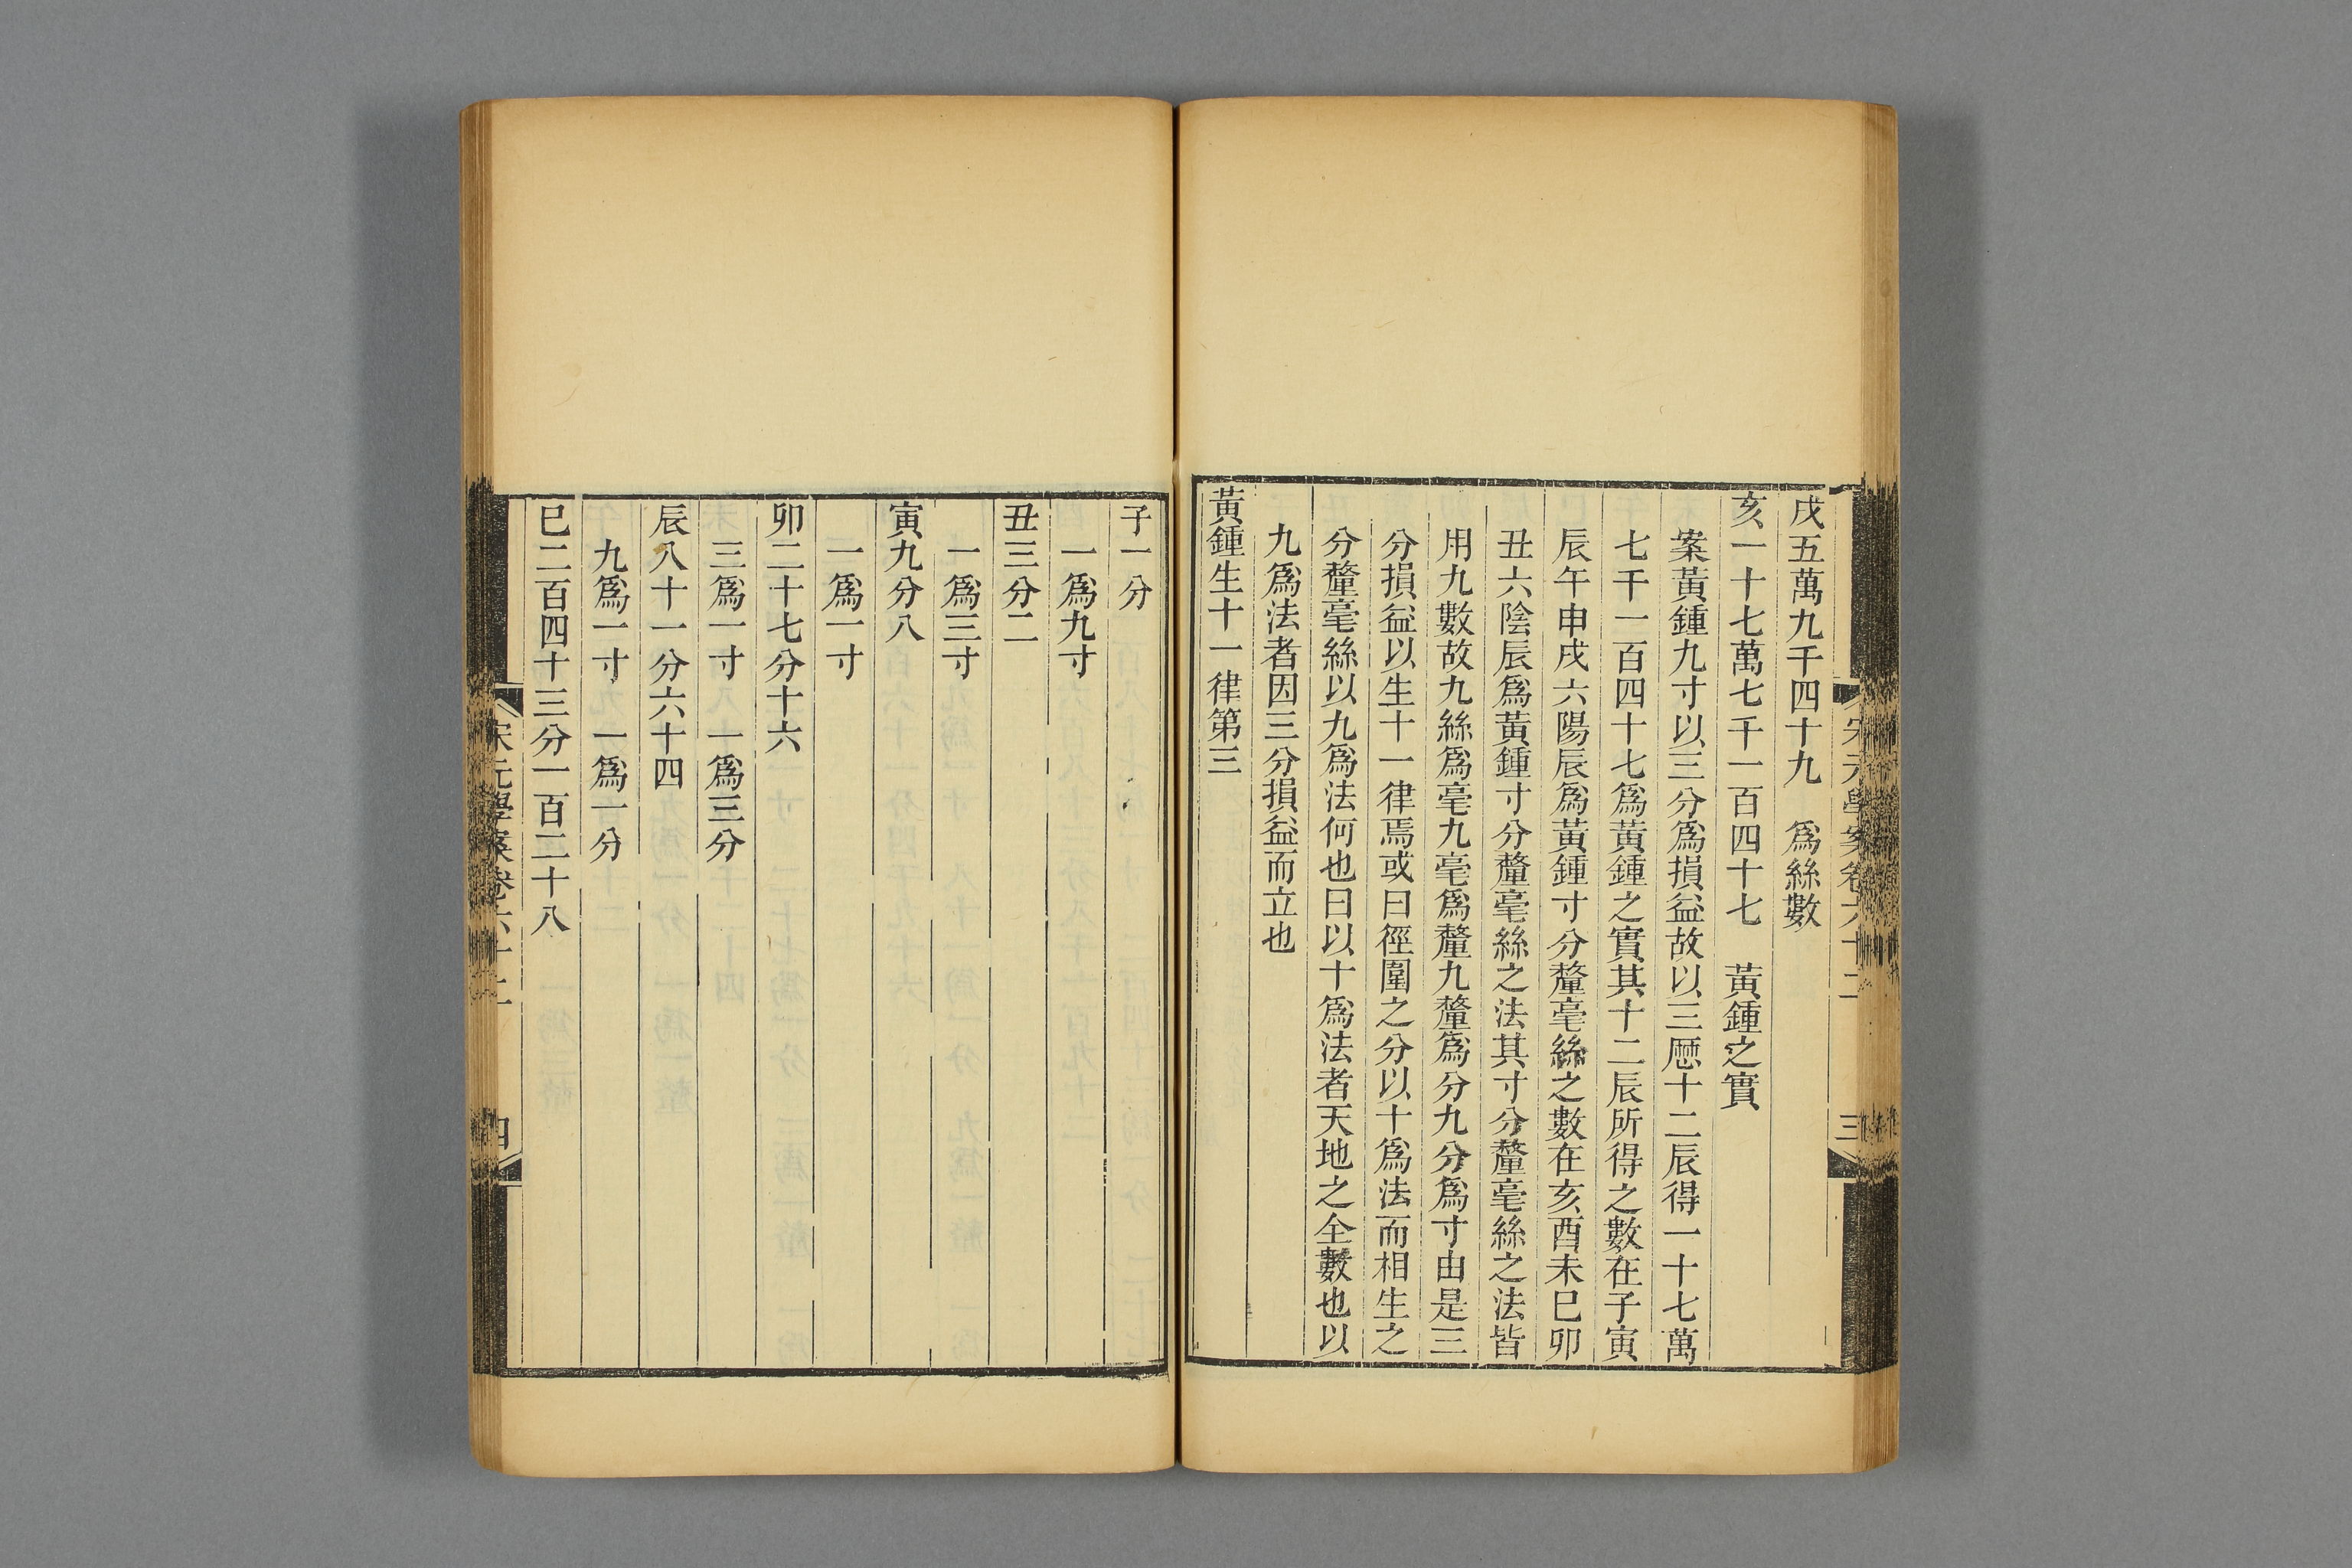 戌五萬九千四十九　爲絲數
亥一十七萬七千一百四十七　黃鍾之實
案黃鍾九寸以三分爲損益故以三歷十二辰得一十七萬
七千一百四十七爲黃鍾之實其十二辰所得之數在子寅
辰午申戌六陽辰爲黃鍾寸分釐毫絲之數在亥酉未巳卯
丑六陰辰爲黃鍾寸分釐毫絲之法其寸分釐毫絲之法皆
用九數故九絲爲毫九毫爲釐九釐爲分九分爲寸由是三
分損益以生十一律焉或曰徑圍之分以十爲法而相生之
分釐毫絲以九爲法何也曰以十爲法者天地之全數也以
九爲法者因三分損益而立也
黃鍾生十一律第三
子一分
一爲九寸
丑三分二
一爲三寸
寅九分八
一爲一寸
卯二十七分十六
三爲一寸　一爲三分
辰八十一分六十四
九爲一寸　一爲一分
巳二百四十三分一百二十八
宋元學案卷六十二
四
宋元學案卷六十二
三